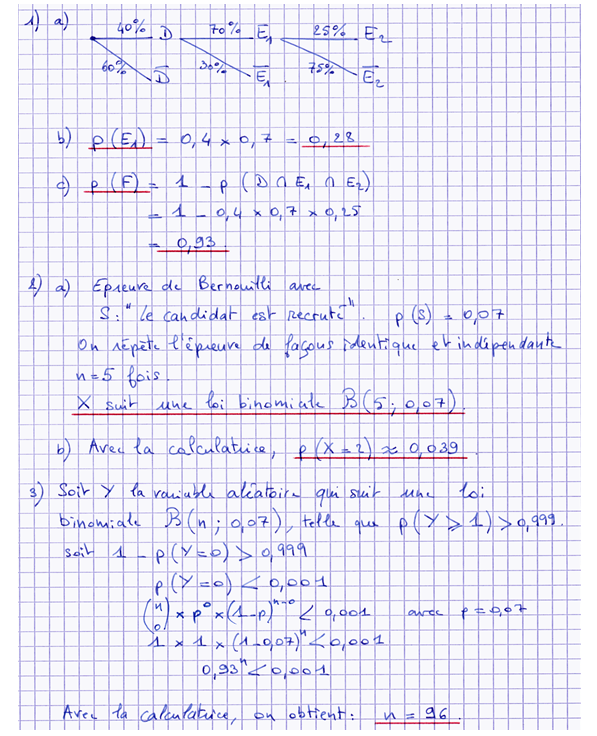 1) a) 40% D 70% E₁ 25% E₂
60% D̅ 30% E̅₁ 75% E̅₂
b) p(E₁) = 0,4 × 0,7 = 0,28
c) p(F) = 1 - p(D ∩ E₁ ∩ E₂)
= 1 - 0,4 × 0,7 × 0,25
= 0,93.
2) a) Epreuve de Bernouilli avec
S: "le candidat est recruté". p(S) = 0,07
On répète l'épreuve de façons identique et indépendante
n=5 fois.
X suit une loi binomiale B(5; 0,07).
b) Avec la calculatrice, p(X=2) ≈ 0,039.
3) Soit Y la variable aléatoire qui suit une loi
binomiale B(n; 0,07), telle que p(Y ⩾ 1) > 0,999.
soit 1 - p(Y=0) > 0,999
p(Y=0) < 0,001
(n 0) × p⁰ × (1-p)ⁿ⁻⁰ < 0,001 avec p=0,07
1 × 1 × (1-0,07)ⁿ < 0,001
0,93ⁿ < 0,001
Avec la calculatrice, on obtient: n = 96.